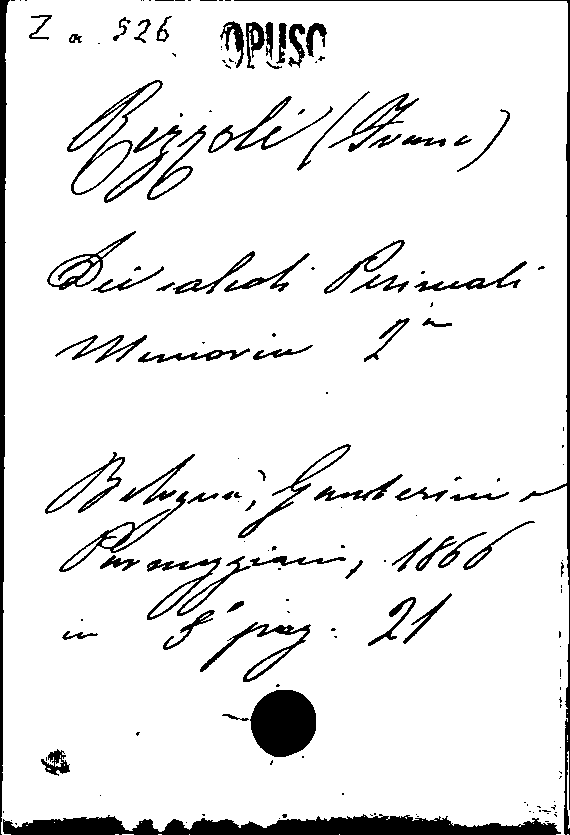 Z a 526 OPUSC
Rizzoli (Ivano)
Dei calcoli Perineali
Memoria 2ª
Bologna, Gamberini e
Parmeggiani, 1866
in 8° pag. 21